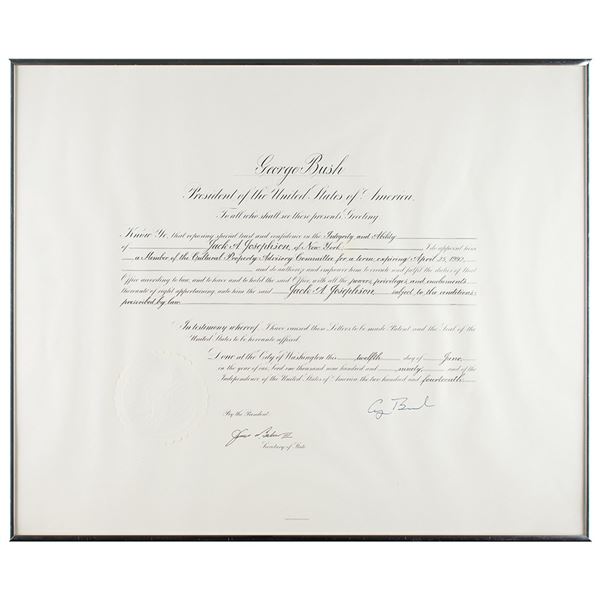 George Bush
President of the United States of America.
To all who shall see these presents, Greeting:
Know Ye, that reposing special trust and confidence in the Integrity and Ability
of Jack A. Josephson, of New York, I do appoint him
a Member of the Cultural Property Advisory Committee for a term expiring April 25, 1992,
and do authorize and empower him to execute and fulfil the duties of that
Office according to law, and to have and to hold the said Office, with all the powers, privileges, and emoluments
thereunto of right appertaining, unto him the said Jack A. Josephson, subject to the conditions
prescribed by law.
In testimony whereof, I have caused these Letters to be made Patent and the Seal of the
United States to be hereunto affixed.
Done at the City of Washington this twelfth day of June,
in the year of our Lord one thousand nine hundred and ninety, and of the
Independence of the United States of America the two hundred and fourteenth.
By the President:
G Bush
James Baker III
Secretary of State